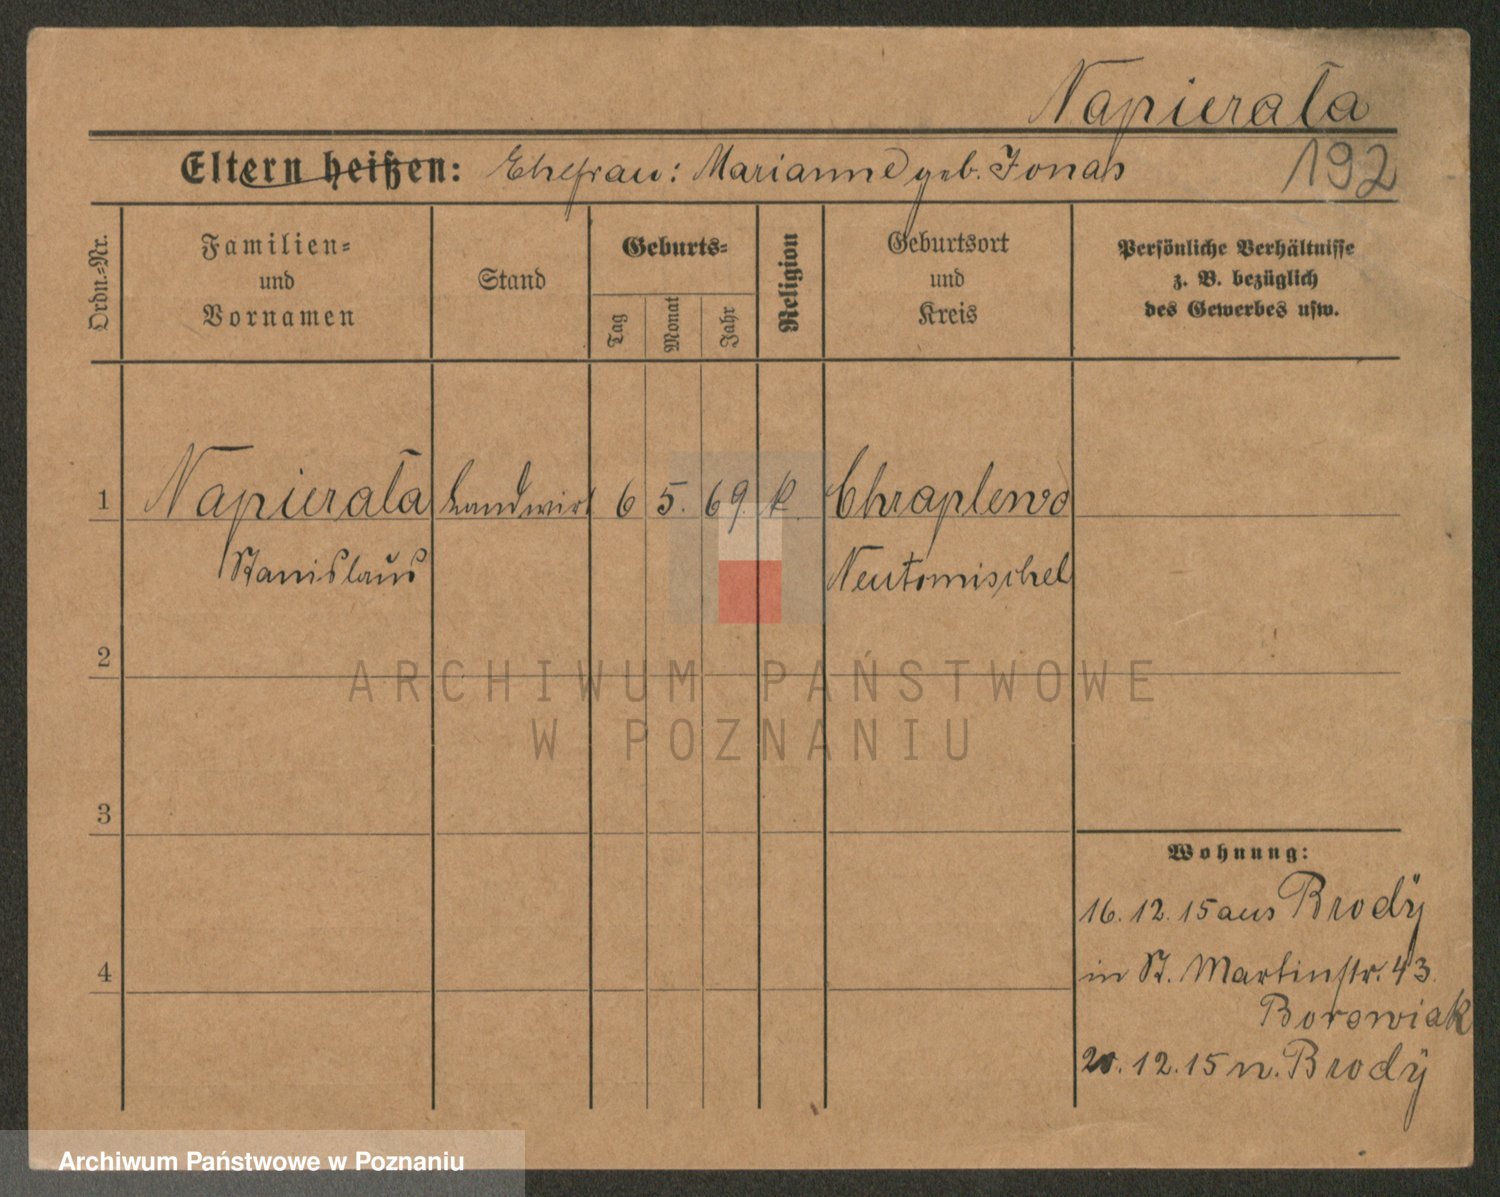 Napierała
Eltern heißen: Ehefrau: Marianne geb. Jonas
192
Ordn.-Nr.
Familien-
und
Vornamen
Stand
Geburts-
Tag
Monat
Jahr
Religion
Geburtsort
und
Kreis
Persönliche Verhältnisse
z. B. bezüglich
des Gewerbes usw.
1 Napierała Landwirt 6 5. 69. k. Chraplewo
Stanislaus Neutomischel
2
ARCHIWUM PAŃSTWOWE
W POZNANIU
3
Wohnung:
16. 12. 15 aus Brody
in St. Martinstr. 43.
4
Borowiak
20. 12. 15 n. Brody
Archiwum Państwowe w Poznaniu